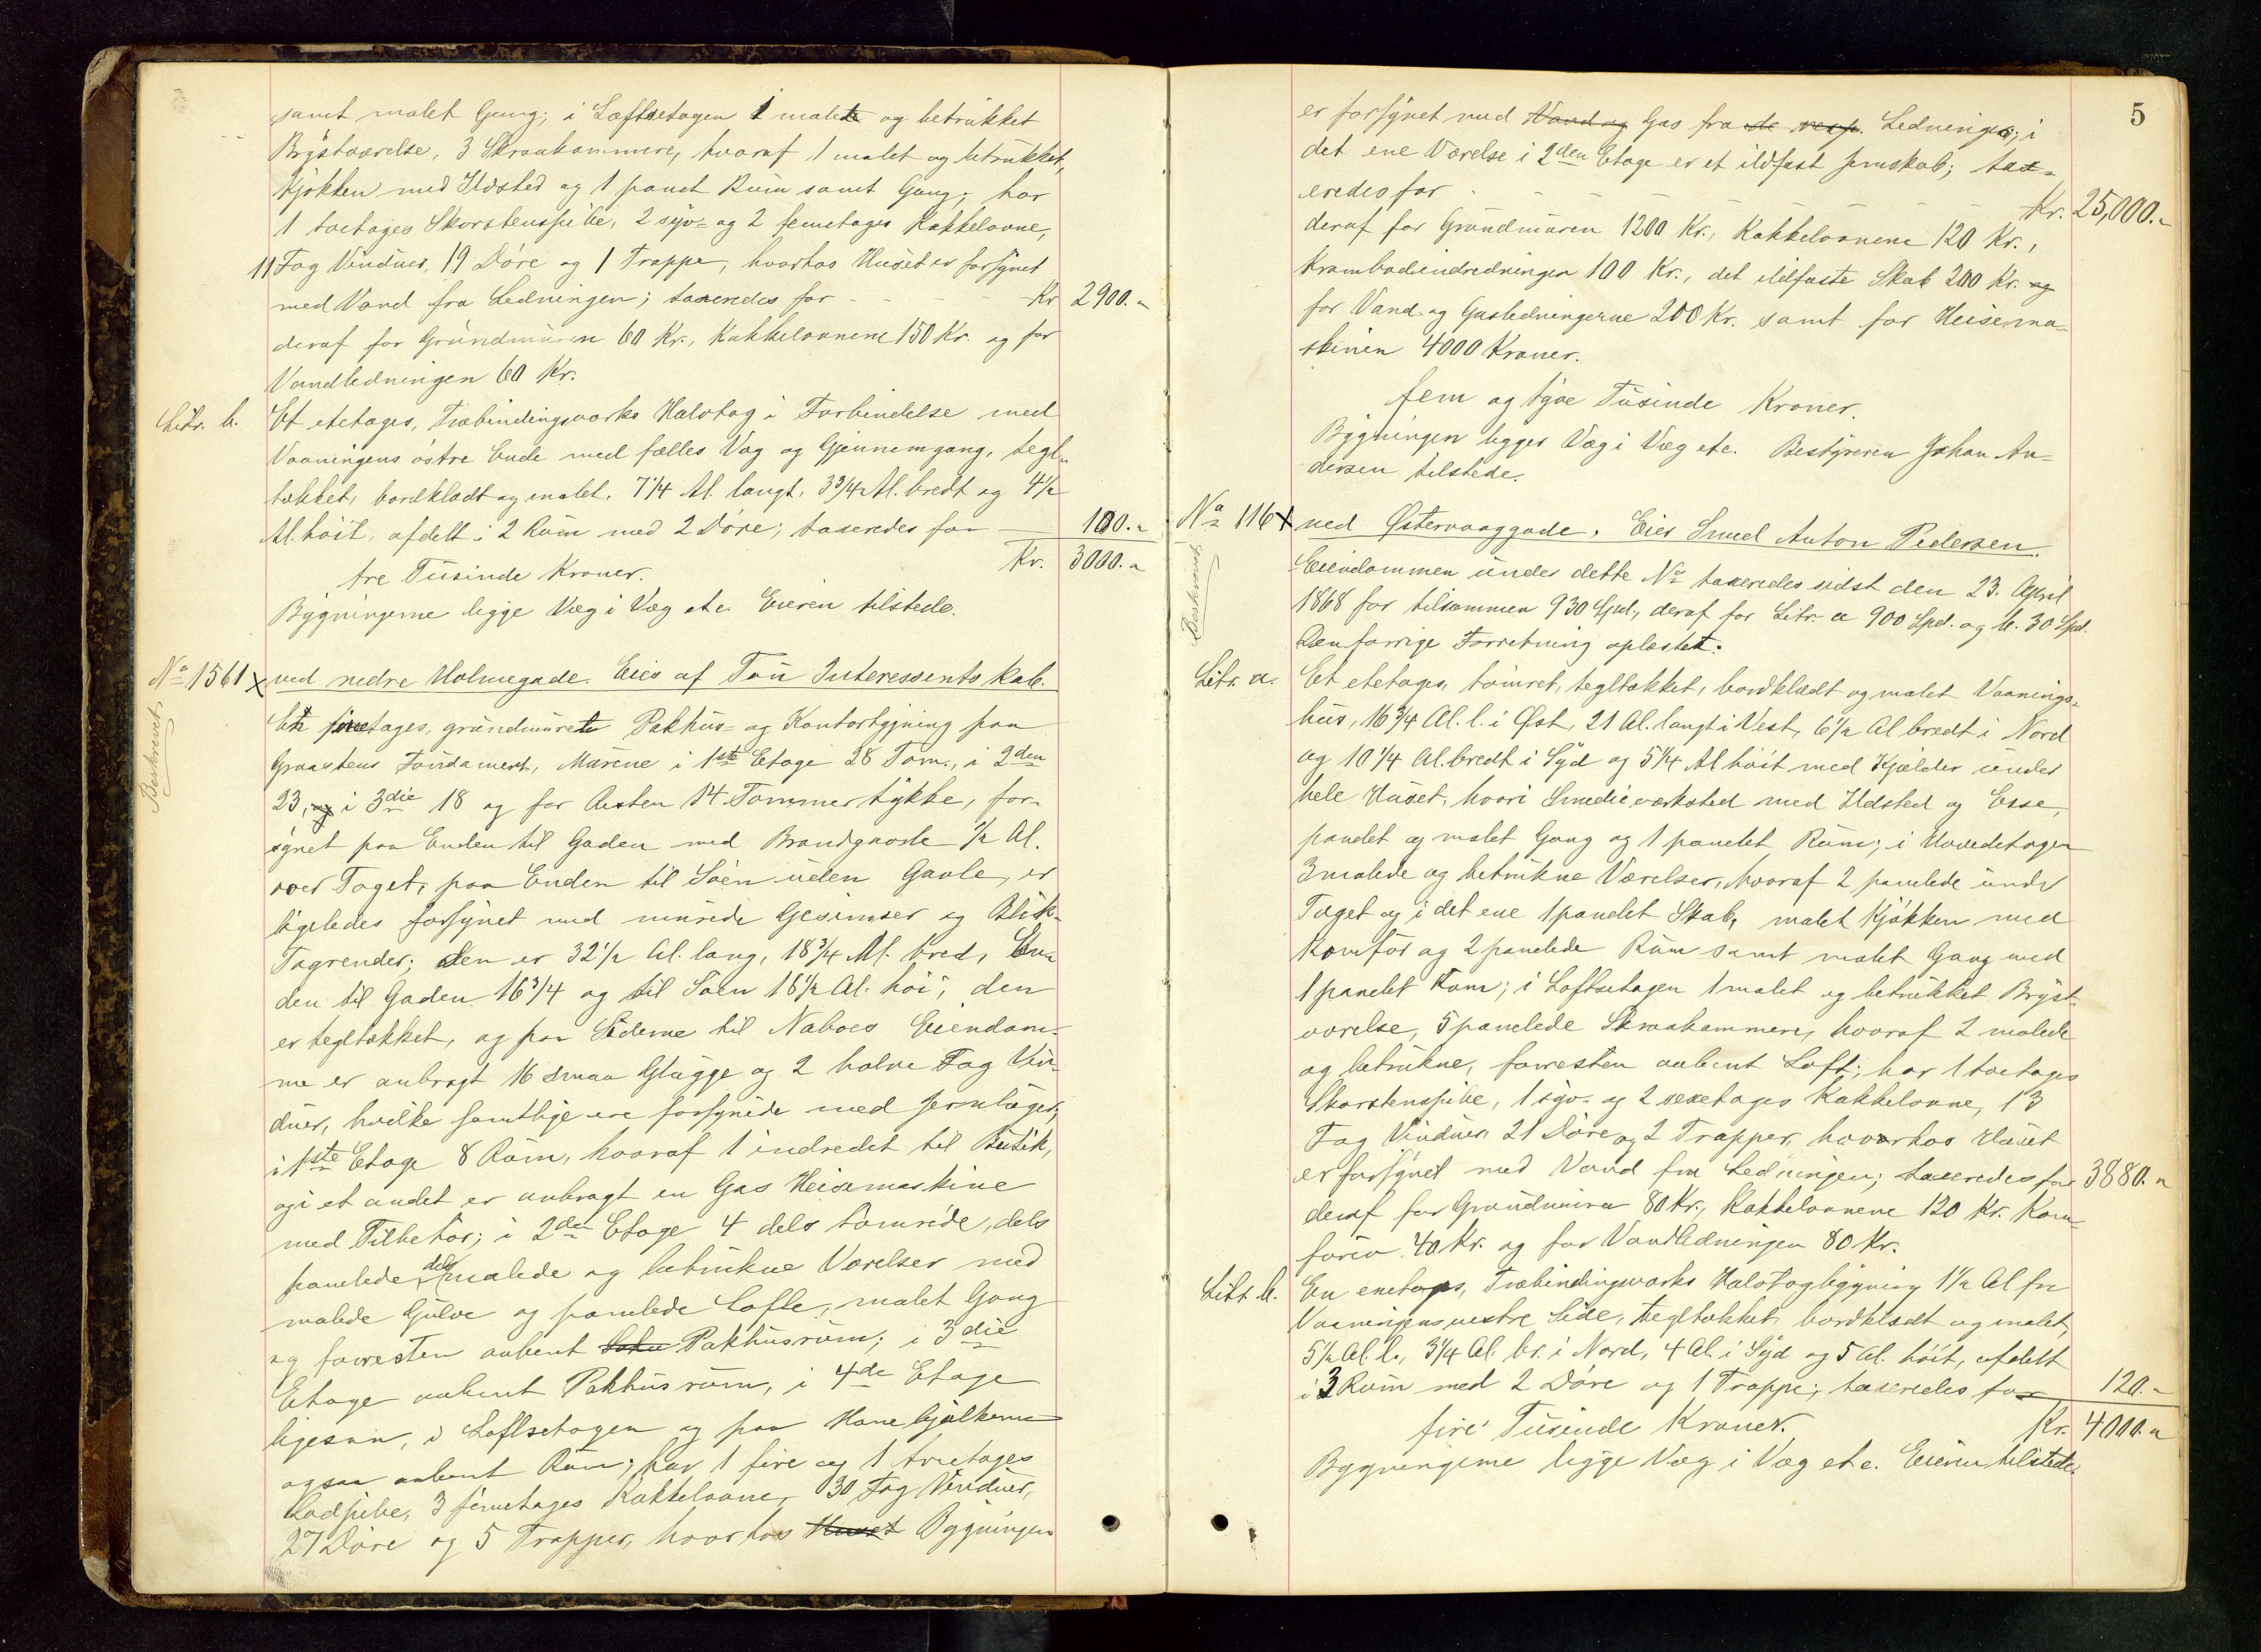 samt malet Gang; i Loftsetagen 1 malet og betrukket
Brystværelse, 3 Skraakammere, hvoraf 1 malet og betrukket,
Kjøkken med Ildsted og 1 panet Rum samt Gang; har
1 toetages Skorstenspibe, 2 syv- og 2 femetages Kakkelovne,
11 Fag Vinduer, 19 Døre og 1 Trappe, hvorhos Huset er forsynet
med Vand fra Ledningen; taxeredes for - - - - Kr 2900.-
deraf for Grundmuren 60 Kr., Kakkelovnene 150 Kr. og for
Vandledningen 60 Kr.
Litr. b. Et etetages, Træbindingsværks Halvtag i Forbindelse med
Vaaningens østre Ende med fælles Væg og Gjennemgang, tegl-
tækket, bordklædt og malet, 7 1/4 Al. langt, 3 3/4 Al. bredt og 4 1/2
Al. høit, afdelt i 2 Rum med 2 Døre; taxeredes for — 100.-
tre Tusinde Kroner. Kr. 3000.-
Bygningerne ligge Væg i Væg etc. Eieren tilstede.
No 1561 x ved nedre Holmegade. Eies af Tou Interessentskab.
Bestrevet
En firetages, grundmuret Pakhus- og Kontorbygning paa
Graastens Fundament, Murene i 1ste Etage 28 Tom., i 2den
23, og i 3die 18 og for Resten 14 Tommer tykke, for-
synet paa Enden til Gaden med Brandgavle 1/2 Al.
over Taget, paa Enden til Søen uden Gavle, er
ligeledes forsynet med murede Gesimser og Blik-
Tagrender; den er 32 1/2 Al. lang, 18 3/4 Al. bred, En-
den til Gaden 16 3/4 og til Søen 16 1/2 Al. høi, den
er tegltækket, og paa Siderne til Naboes Eiendom-
me er anbragt 16 smaa Glugge og 2 halve Fag Vin-
duer, hvilke samtlige ere forsynede med Jernluger;
i 1ste Etage 8 Rum, hvoraf 1 indredet til Butik,
og i et andet er anbragt en Gas Heisemaskine
med Tilbehør; i 2den Etage 4 dels tømrede, dels
panelede, dels malede og betrukne Værelser med
malede Gulve og panelede Lofte, malet Gang
og forresten aabent Pakhusrum; i 3die
Etage aabent Pakhusrum, i 4de Etage
ligesaa, i Loftsetagen og paa Hanebjælkerne
ogsaa aabent Rum; har 1 fire og 1 treetages
Lodpibe, 3 femetages Kakkelovne, 30 Fag Vinduer,
27 Døre og 5 Trapper, hvorhos Huset Bygningen
5
er forsynet med Vand og Gas fra de resp. Ledninger; i
det ene Værelse i 2den Etage er et ildfast Jernskab; tax-
eredes for - - - - Kr. 25,000.-
deraf for Grundmuren 1200 Kr., Kakkelovnene 120 Kr.,
Krambodindredningen 100 Kr., det ildfaste Skab 200 Kr. og
for Vand og Gasledningerne 200 Kr. samt for Heisema-
skinen 4000 Kroner.
fem og tyve Tusinde Kroner.
Bygningen ligger Væg i Væg etc. Bestyreren Johan An-
dersen tilstede.
No 116 x ved Østervaaggade. Eier Smed Anton Pedersen.
Bestrevet
Eiendommen under dette No taxeredes sidst den 23. April
1868 for tilsammen 930 Spd., deraf for Litr. a 900 Spd. og b. 30 Spd.
Den forrige Forretning oplæstet.
Litr. a. Et etetages, tømret, tegltækket, bordklædt og malet Vaanings-
hus, 16 3/4 Al. l. i Øst, 21 Al. langt i Vest, 6 1/2 Al bredt i Nord
og 10 1/4 Al. bredt i Syd og 5 1/4 Al høit med Kjælder under
hele Huset, hvori Smedieværksted med Ildsted og Esse,
panelet og malet Gang og 1 panelet Rum; i Hovedetagen
3 malede og betrukne Værelser, hvoraf 2 panelede under
Taget og i det ene 1 panelet Skab, malet Kjøkken med
Komfur og 2 panelede Rum samt malet Gang med
1 panelet Rum; i Loftsetagen 1 malet og betrukket Bryst-
værelse, 5 panelede Skraakammere, hvoraf 2 malede
og betrukne, forresten aabent Loft; har 1 toetages
Skorstenspibe, 1 syv- og 2 sexetages Kakkelovne, 13
Fag Vinduer 21 Døre og 2 Trapper, hvorhos Huset
er forsynet med Vand fra Ledningen; taxeredes for 3880.-
deraf for Grundmuren 80 Kr., Kakkelovnene 120 Kr. Kom-
furen 40 Kr. og for Vandledningen 80 Kr.
Litr. b. En enetages, Træbindingsværks Halvtagbygning 1 1/2 Al fra
Vaaningens vestre Side, tegltækket, bordklædt og malet,
5 1/2 Al. l., 3 1/4 Al. br. i Nord, 4 Al. i Syd og 5 Al. høit, afdelt
i 3 Rum med 2 Døre og 1 Trappe; taxeredes for 120.-
fire Tusinde Kroner. Kr. 4000.-
Bygningerne ligge Væg i Væg etc. Eieren tilstede.